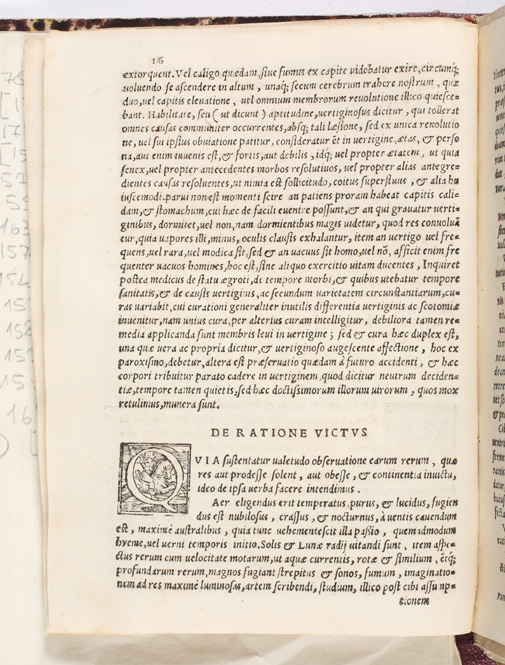 16
extorquent. Vel caligo quædam, siue fumus ex capite videbatur exire, circumq;
uoluendo se ascendere in altum, unaq; secum cerebrum trahere nostrum, quæ
duo, uel capitis eleuatione, uel omnium membrorum reuolutione illico quiesce-
bant. Habilitate, seu (ut dicunt) aptitudine, uertiginosus dicitur, qui tollerat
omnes causas communiter occurrentes, absq; tali læsione, sed ex unica reuolutio
ne, uel sui ipsius obuiatione patitur, consideratur et in uertigine, ætas, & perso
na, aut enim iuuenis est, & fortis, aut debilis, idq; uel propter ætatem, ut quia
senex, uel propter antecedentes morbos resolutiuos, uel propter alias antegre-
dientes causas resoluentes, ut nimia est sollicitudo, coitus superfluus, & alia hu
iuscemodi. parui non est momenti scire an patiens pronam habeat capitis cali-
dam, & stomachum, cui hæc de facili euenire possunt, & an qui grauatur uerti-
ginibus, dormitet, uel non, nam dormientibus magis uidetur, quod res conuoluã
tur, quia uapores illi, minus, oculis clausis exhalantur, item an uertigo uel fre-
quens, uel rara, uel modica sit, sed & an uacuus sit homo, uel nõ, afficit enim fre
quenter uacuos homines, hoc est, sine aliquo exercitio uitam ducentes, Inquiret
postea medicus de statu ægroti, de tempore morbi, & quibus utebatur tempore
sanitatis, & de causis uertiginis, ac secundum uarietatem circunstantiarum, cu-
ras uariabit, cui curationi generaliter inutilis differentia uertiginis ac scotomiæ
inuenitur, nam unius cura, per alterius curam intelligitur, debiliora tamen re-
media applicanda sunt membris leui in uertigine; sed & cura hæc duplex est,
una quæ uera ac propria dicitur, & uertiginoso augescente affectione, hoc ex
paroxismo, debetur, altera est præseruatio quædam à futuro accidenti, & hæc
corpori tribuitur parato cadere in uertiginem, quod dicitur neutrum deciden-
tiæ, tempore tamen quietis, sed hæc doctissimorum illorum uirorum, quos mox
retulimus, munera sunt.
DE RATIONE VICTVS
QVIA sustentatur ualetudo obseruatione earum rerum, quæ
res aut prodesse solent, aut obesse, & continentia inuicta,
ideo de ipsa uerba facere intendimus.
Aer eligendus erit temperatus, purus, & lucidus, fugien
dus est nubilosus, crassus, & nocturnus, à uentis cauendum
est, maximè australibus, quia tunc uehementescit illa passio, quemadmodum
hyeme, uel uerni temporis initio. Solis & Lunæ radij uitandi sunt, item aspe-
ctus rerum cum uelocitate motarum, ut aquæ currentis, rotæ & similium, eñq;
profundarum rerum, magnos fugiant strepitus & sonos, fumum, imaginatio-
nem ad res maximè luminosas, artem scribendi, studium, illico post cibi assump-
tionem